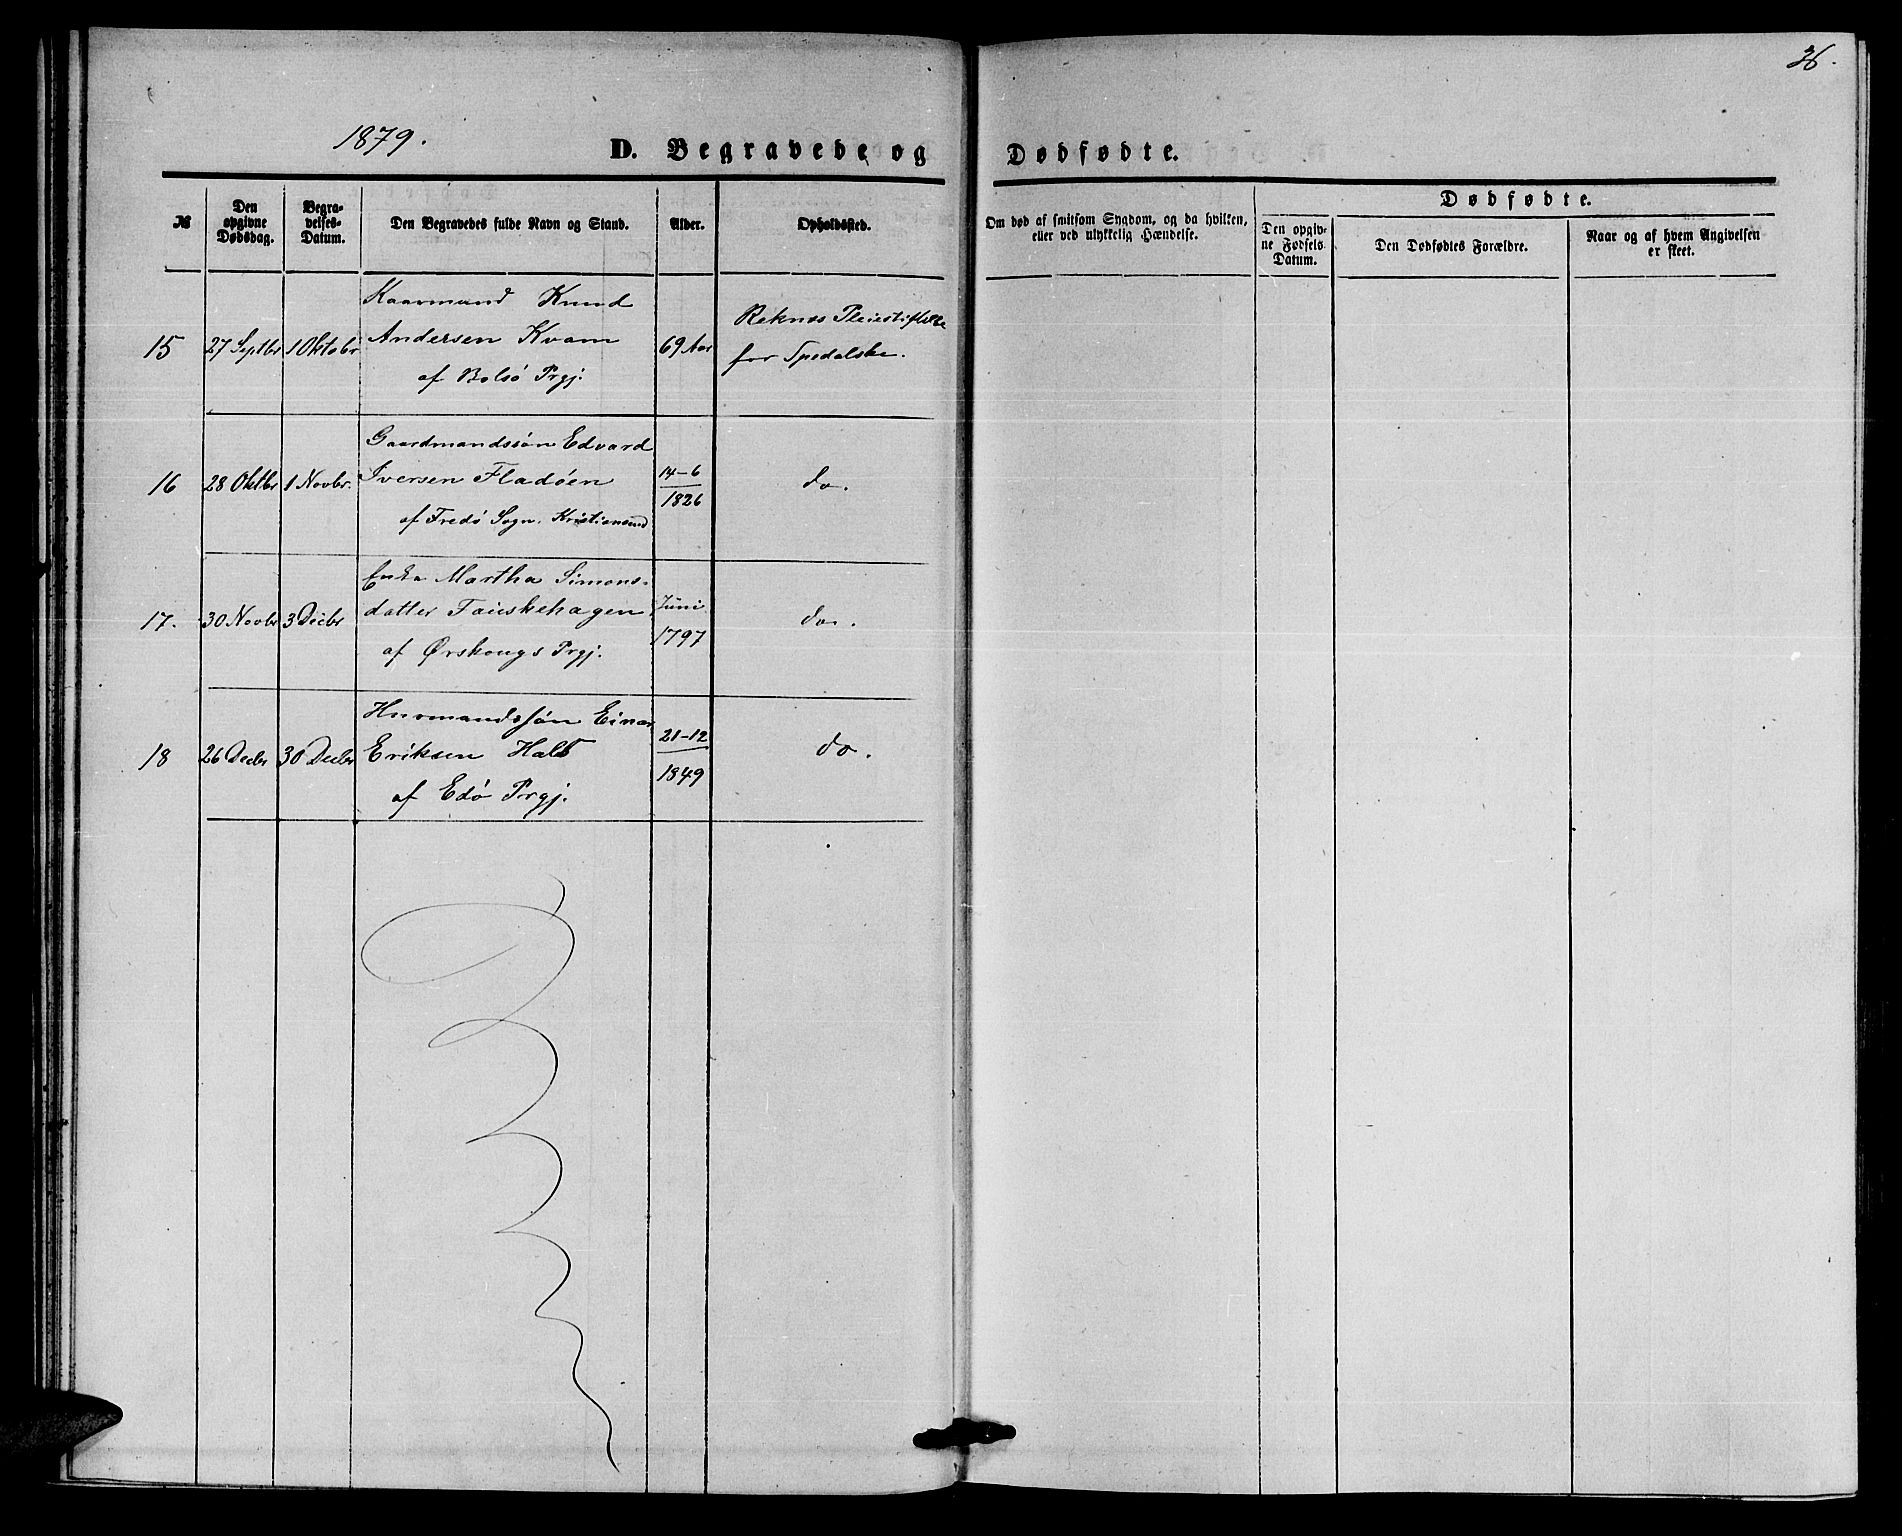 36.
1879.
D. Begravede og Dødfødte.
№
Den opgivne Dødsdag.
Begravelses-Datum.
Den Begravedes fulde Navn og Stand.
Alder.
Opholdssted.
Om død af smitsom Sygdom, og da hvilken, eller ved ulykkelig Hændelse.
Dødfødte.
Den opgivne Fødsels Datum.
Den Dødfødtes Forældre.
Naar og af hvem Angivelsen er skeet.
Kaarmand Knud
15 27 Septbr 1 Oktobr Andersen Kvam 69 Aar Reknes Pleiestiftelse
af Bolsö Prgj. for Spedalske.
Gaardmandssön Edvard
16 28 Oktbr 1 Novbr. Iversen Fladöen 14-6 1826 do.
af Fredö Sogn. Kristiansund
Enke Martha Simons-
17. 30 Novbr 3 Decbr datter Tauskehagen Juni 1797 do.
af Ørskougs Prgj.
Husmandssön Einar
18 26 Decbr 30 Decbr Eriksen 21-12 1849 do.
af Edö Prgj.